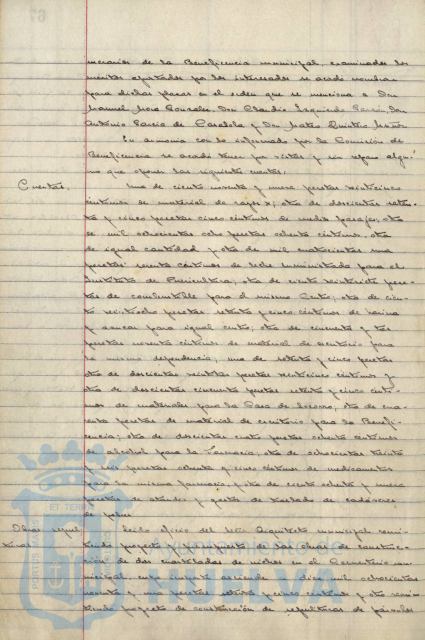 merarios de la Beneficencia municipal, examinados los
méritos aportados por los interesados se acordó nombrar
para dichas plazas en el orden que se menciona a Don
Manuel Mora Gonzalez, Don Claudio Izquierdo Don
Antonio Garcia de Don Mateo Quintero
En armonia con lo informado por la Comisión de
Beneficencia se acordó tener por vistas y sin reparo algu-
no que oponer las siguientes cuentas:
Cuentas. Una de ciento noventa y nueve pesetas veinticinco
céntimos de material de rayos x; otra de doscientas
ta y cinco pesetas cinco céntimos de otra
de mil ochocientas ocho pesetas ochenta céntimos, otra
de igual cantidad y otra de mil cuatrocientas una
pesetas noventa céntimos de leche suministrada para el
Instituto de Puericultura; otra de ciento veintiocho pese-
tas de combustible para el mismo Cento; otra de cien-
to veintiocho pesetas setenta y cinco céntimos de harina
y azucar para igual cento; otra de cincuenta y tres
pesetas noventa céntimos de material de escritorio para
la misma dependencia; una de setenta y cinco pesetas
otra de doscientas pesetas veinticinco céntimos y
otra de doscientas cincuenta pesetas setenta y cinco cénti-
mos de materiales para la Casa de Socorro; otra de cua-
renta pesetas de material de escritorio para la Benefi-
cencia; otra de doscientas cuatro pesetas ochenta céntimos
de alcohol para la Farmacia; otra de ochocientas treinta
y seis pesetas ochenta y cinco céntimos de medicamentos
para la misma farmacia, y otra de ciento ochenta y nueve
pesetas de ataudes y gastos de traslado de cadáveres
de pobres.
Obras sepul- Leido oficio del Señor Arquitecto municipal remi-
turas. tiendo proyecto y presupuesto de las obras de construc-
ción de dos cuarteladas de nichos en el Cementerio mu-
nicipal, cuyo importe asciende a diez mil ochocientas
noventa y una pesetas setenta y cinco céntimos y otro remi-
tiendo proyecto de construcción de sepulturas de párvulos
Ayuntamiento de
HUELVA